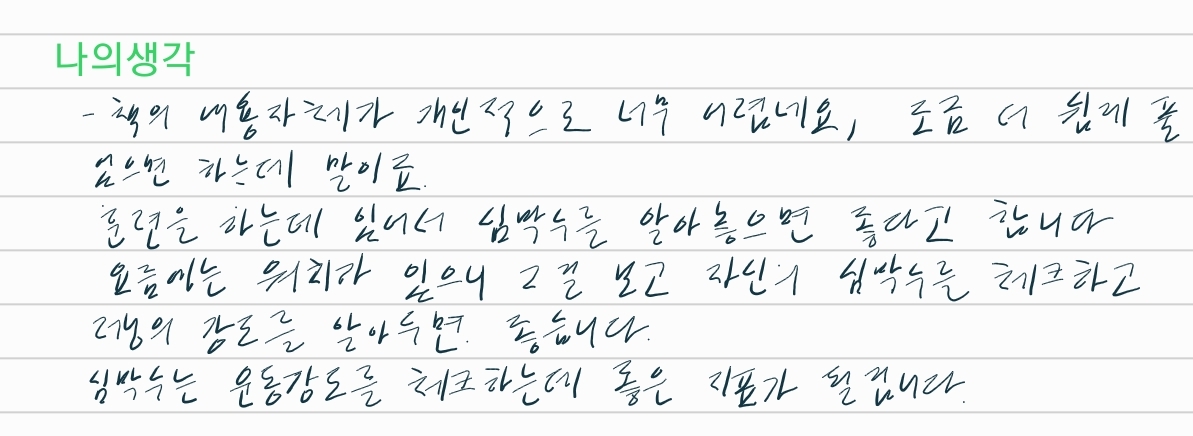 나의생각
- 책의 내용자체가 개인적으로 너무 어렵네요, 조금 더 쉽게 풀
었으면 하는데 말이죠.
훈련을 하는데 있어서 심박수를 알아놓으면 좋다고 합니다
요즘에는 워치가 있으니 그걸 보고 자신의 심박수를 체크하고
러닝의 강도를 알아두면 좋습니다.
심박수는 운동강도를 체크하는데 좋은 지표가 될겁니다.